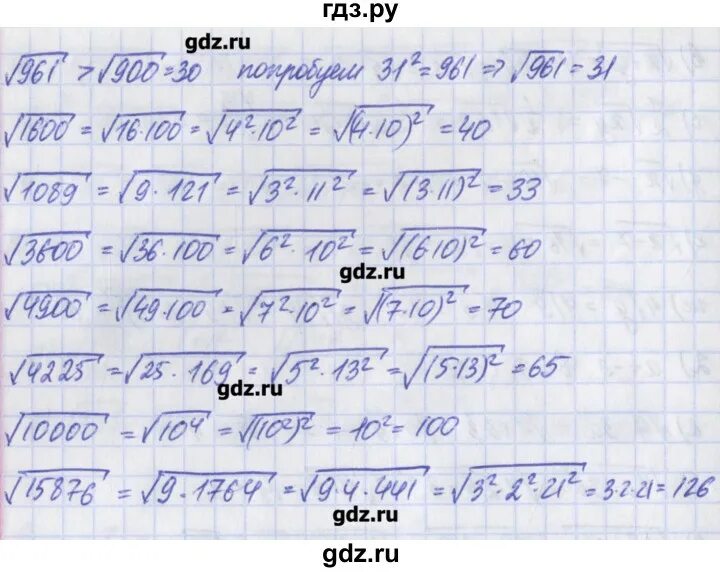 гдз.ру
gdz.ru
√961 > √900 = 30 попробуем 31² = 961 => √961 = 31
√1600 = √16·100 = √4²·10² = √(4·10)² = 40
√1089 = √9·121 = √3²·11² = √(3·11)² = 33
√3600 = √36·100 = √6²·10² = √(6·10)² = 60
gdz.ru
√4900 = √49·100 = √7²·10² = √(7·10)² = 70
√4225 = √25·169 = √5²·13² = √(5·13)² = 65
gdz.ru
√10000 = √10⁴ = √(10²)² = 10² = 100
√15876 = √9·1764 = √9·4·441 = √3²·2²·21² = 3·2·21 = 126
gdz.ru
gdz.ru